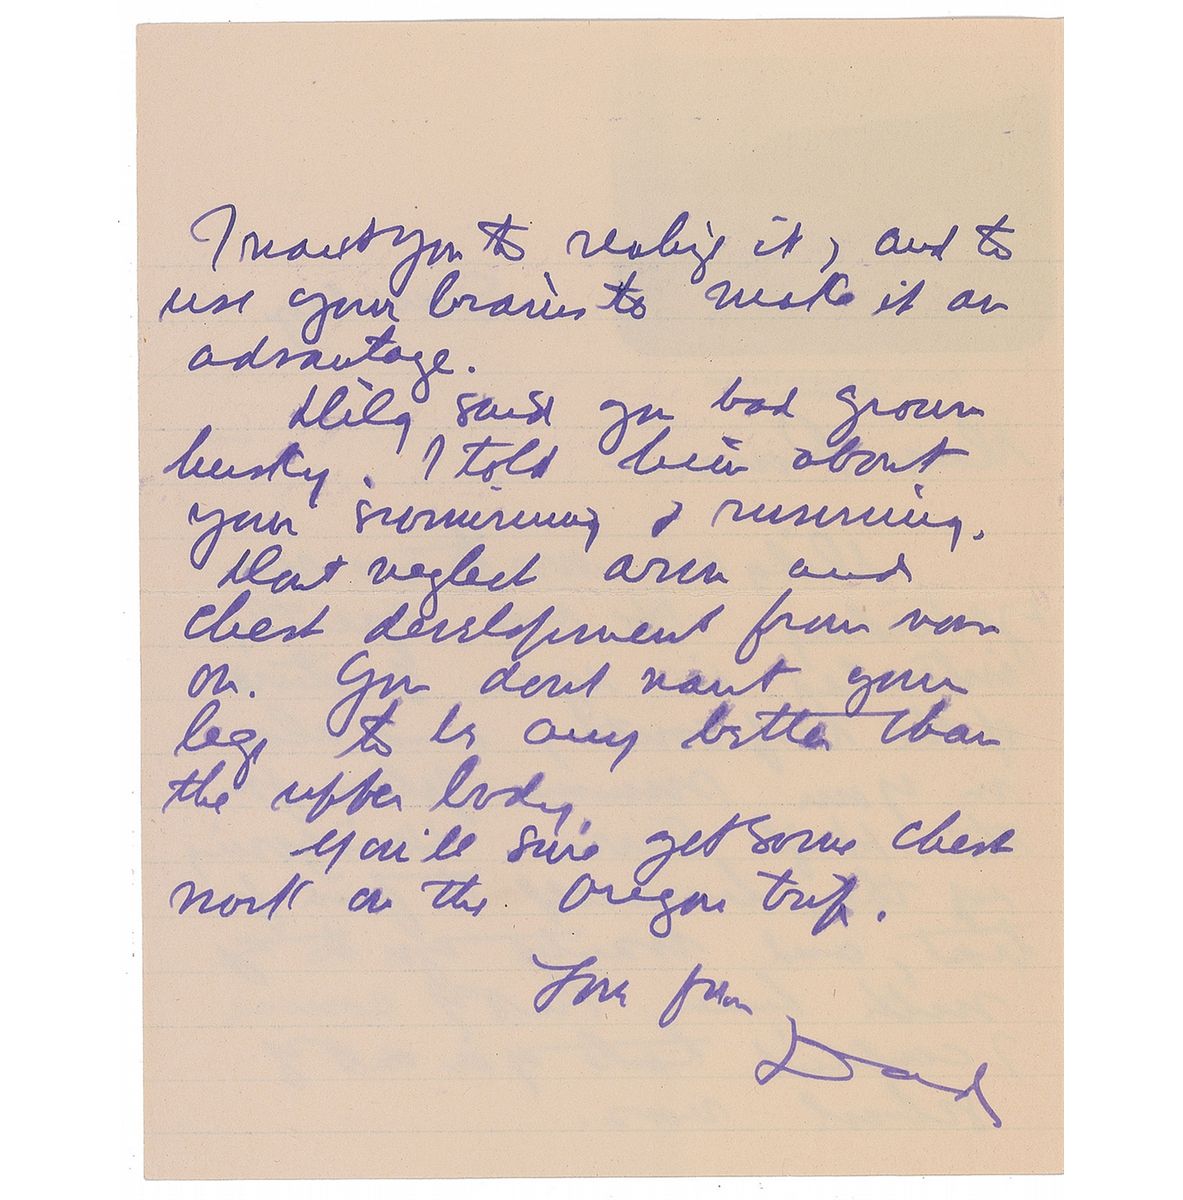 I want you to realize it, and to
use your brains to make it an
advantage.
said you had grown
husky. I told him about
your swimming & running.
Dont neglect arm and
chest development from now
on. You dont want your
legs to be any better than
the upper body.
You'll sure get some chest
work on the Oregon trip.
Love from
Dad